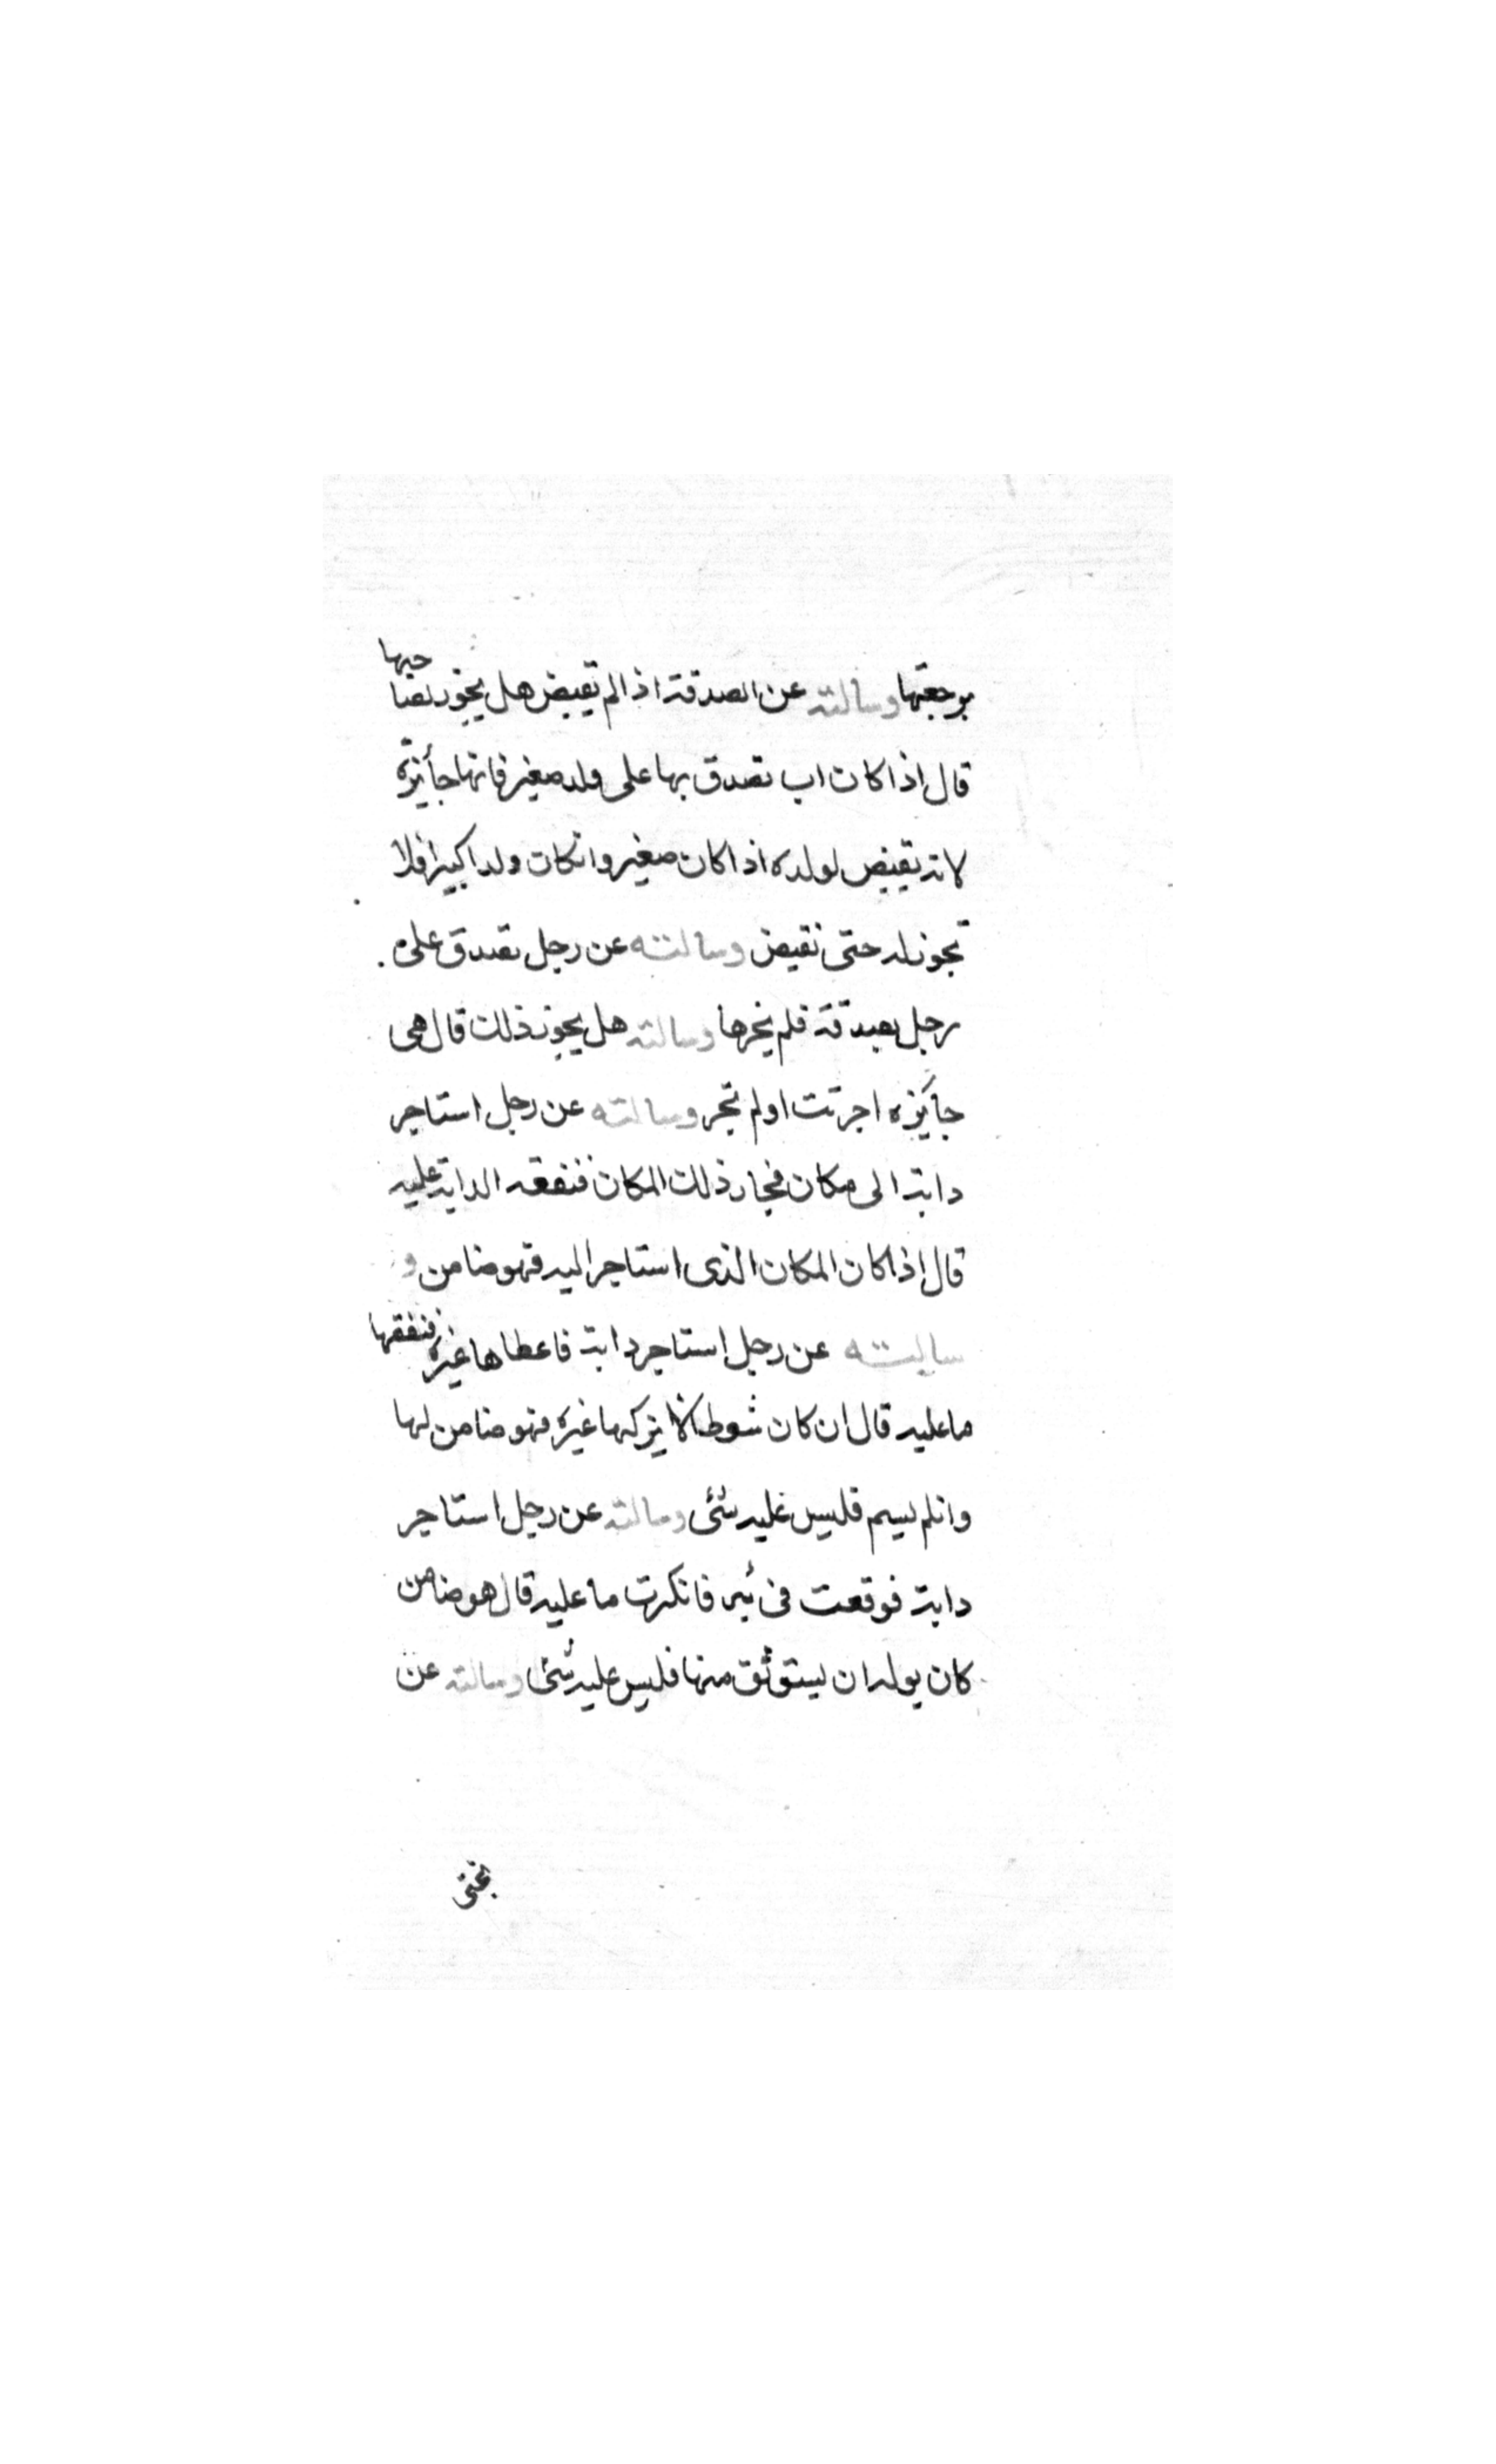 برجعتها وسالته عن الصدقة اذا لم تقبض هل يجوز لصاحبها
قال اذا كان اب تصدق بها على ولد صغير فانها جائزة
لانه يقبض لولده اذا كان صغير وانكان ولدا كبيرا فلا
تجوز له حتى تقبض وسالته عن رجل تصدق على
رجل بصدقة فلم يخرها وسالته هل يجوز ذلك قال هى
جائزه اجرتت اولم تجر وسالته عن رجل استاجر
دابة الى مكان فجاز ذلك المكان فنفقه الدابة عليه
قال اذا كان المكان الذى استاجر اليه فهو ضامن و
سالته عن رجل استاجر دابة فاعطاها غيره فنفقها
ما عليه قال ان كان شرط الا يركبها غيره فهو ضامن لها
وانلم يسم فليس عليه شئى وسالته عن رجل استاجر
دابة فوقعت فى بئر فانكرت ما عليه قال هو ضامن
كان يوله ان يستوثق منها فليس عليه شئى وسالته عن
بختى